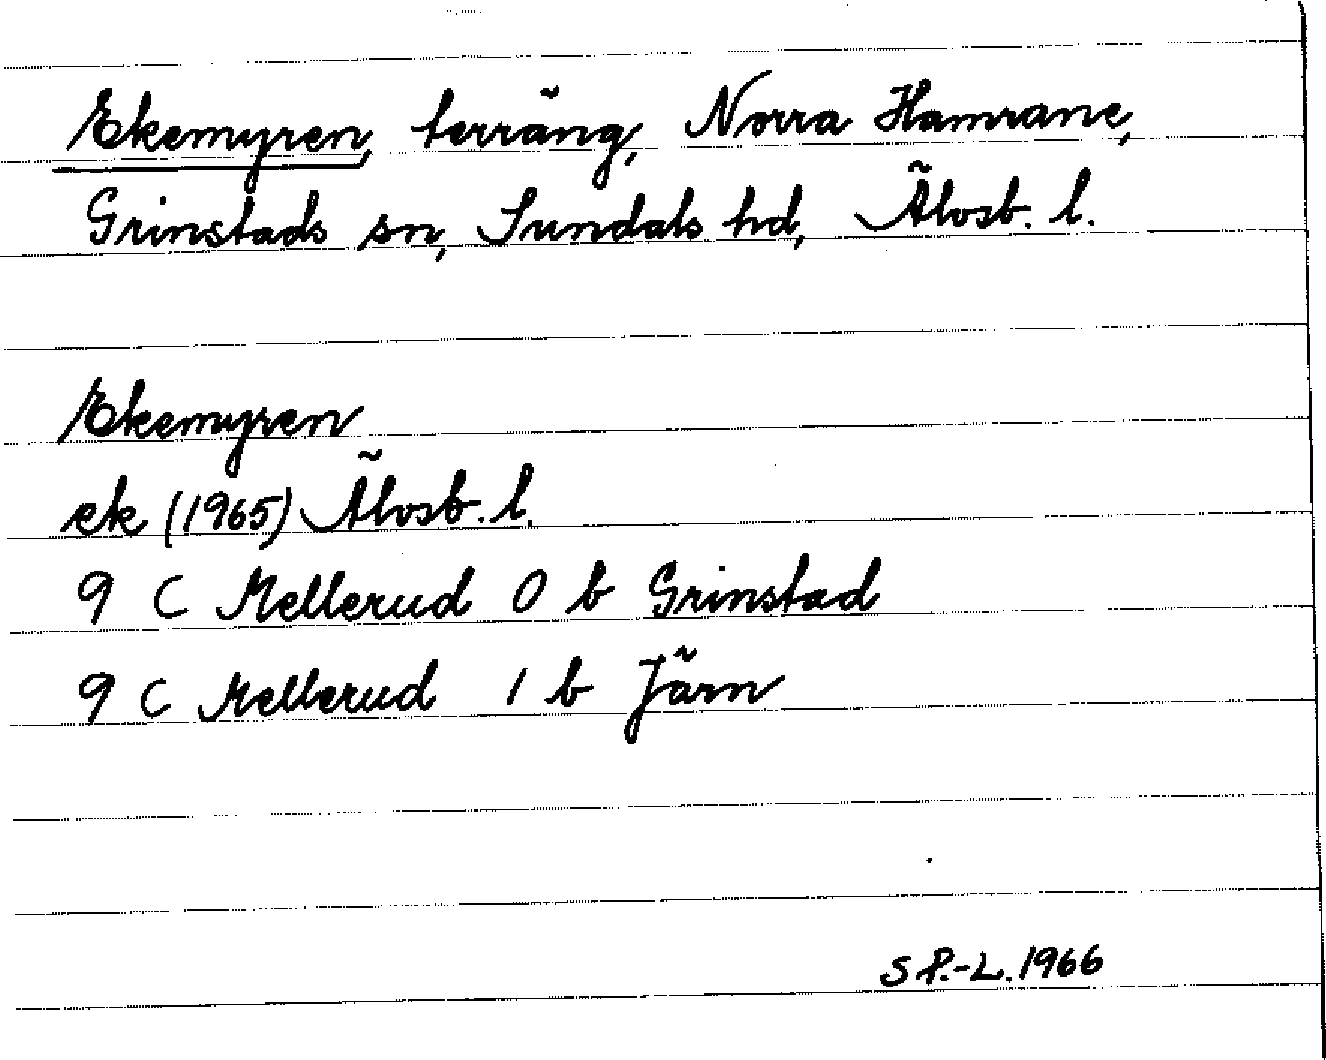 Ekemyren, terräng, Norra Hamrane,
Grinstads sn, Sundals hd, Älvsb. l.
Ekemyren
ek (1965) Älvsb. l.
9 C Mellerud 0 b Grinstad
9 C Mellerud 1 b Järn
S P.-L. 1966